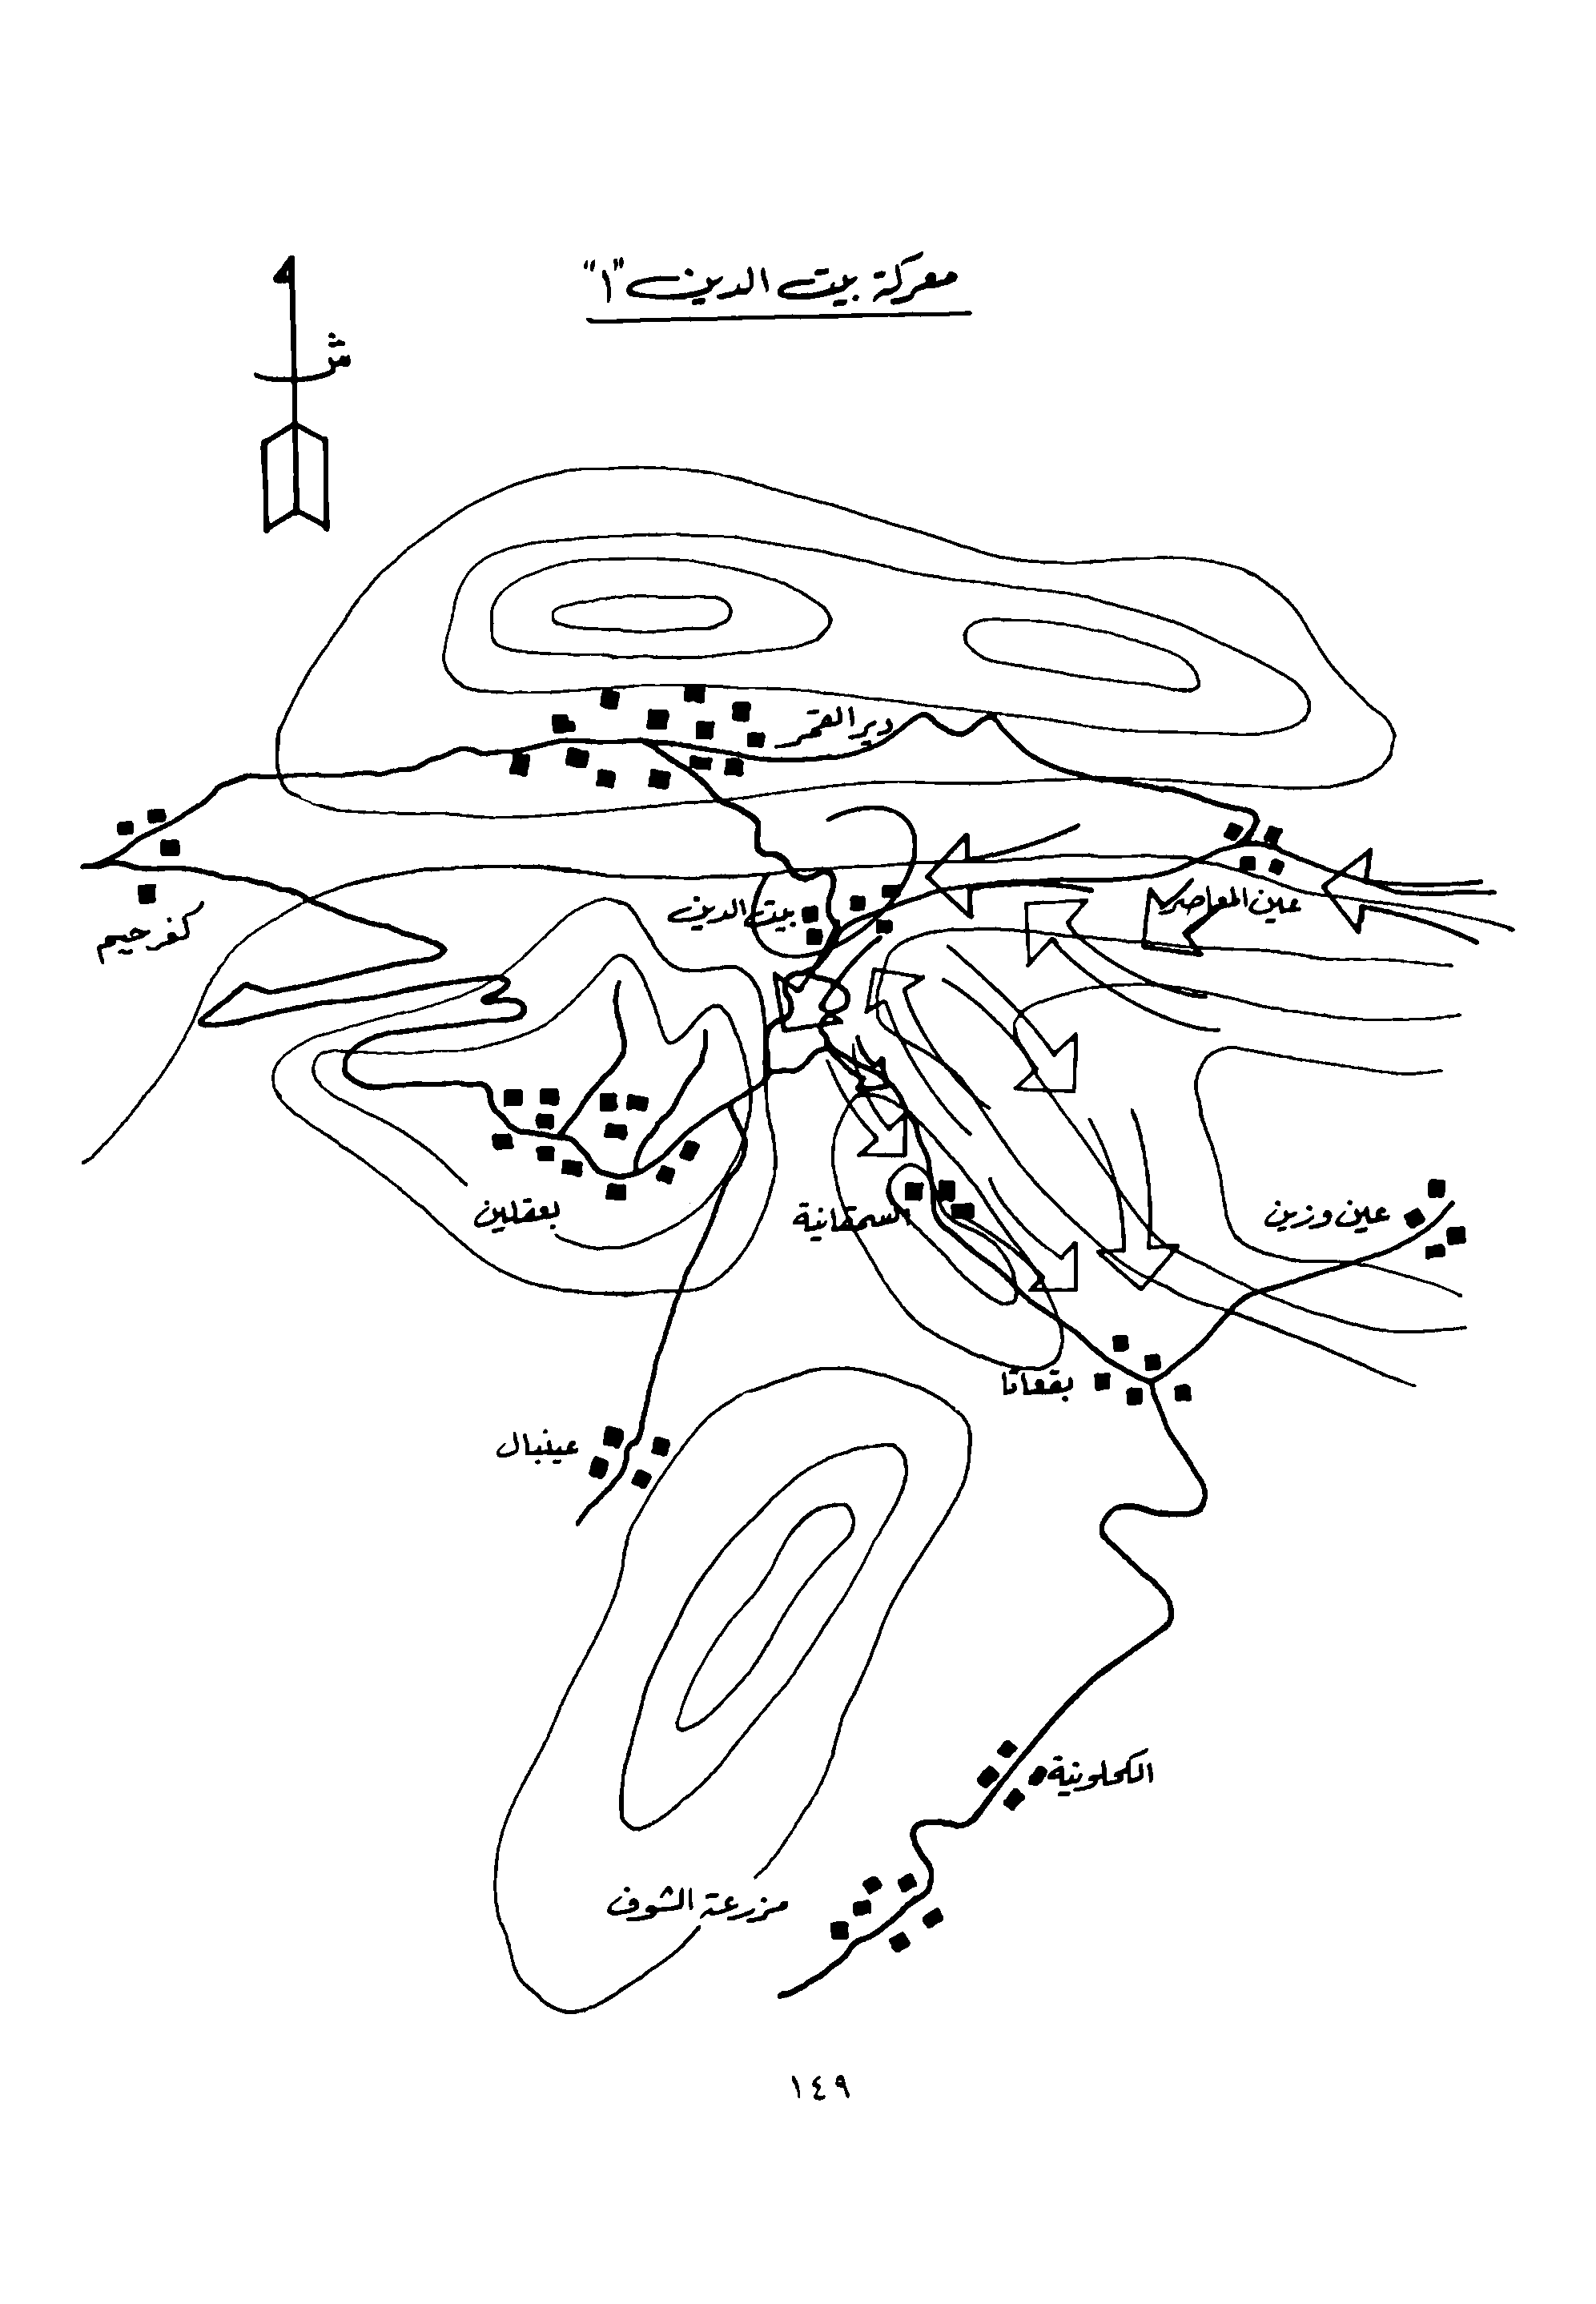 معركة بيت الدين "١"
ش
دير القمر
عين المعاصر
بيت الدين
كفرحيم
بعقلين
السمقانية
عين وزين
بقعاتا
عينبال
الكحلونية
مزرعة الشوف
١٤٩